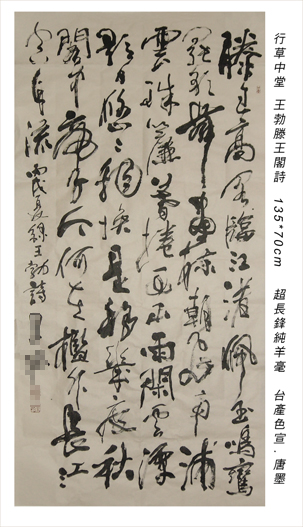 行草中堂 王勃滕王閣詩 135*70cm 超長鋒純羊毫 台產色宣.唐墨
滕王高閣臨江渚佩玉鳴鸞
罷歌舞畫棟朝飛南浦
雲珠簾暮捲西山雨閑雲潭
影日悠〻物換星移幾度秋
閣中帝子今何在檻外長江
空自流 夏錄王勃詩